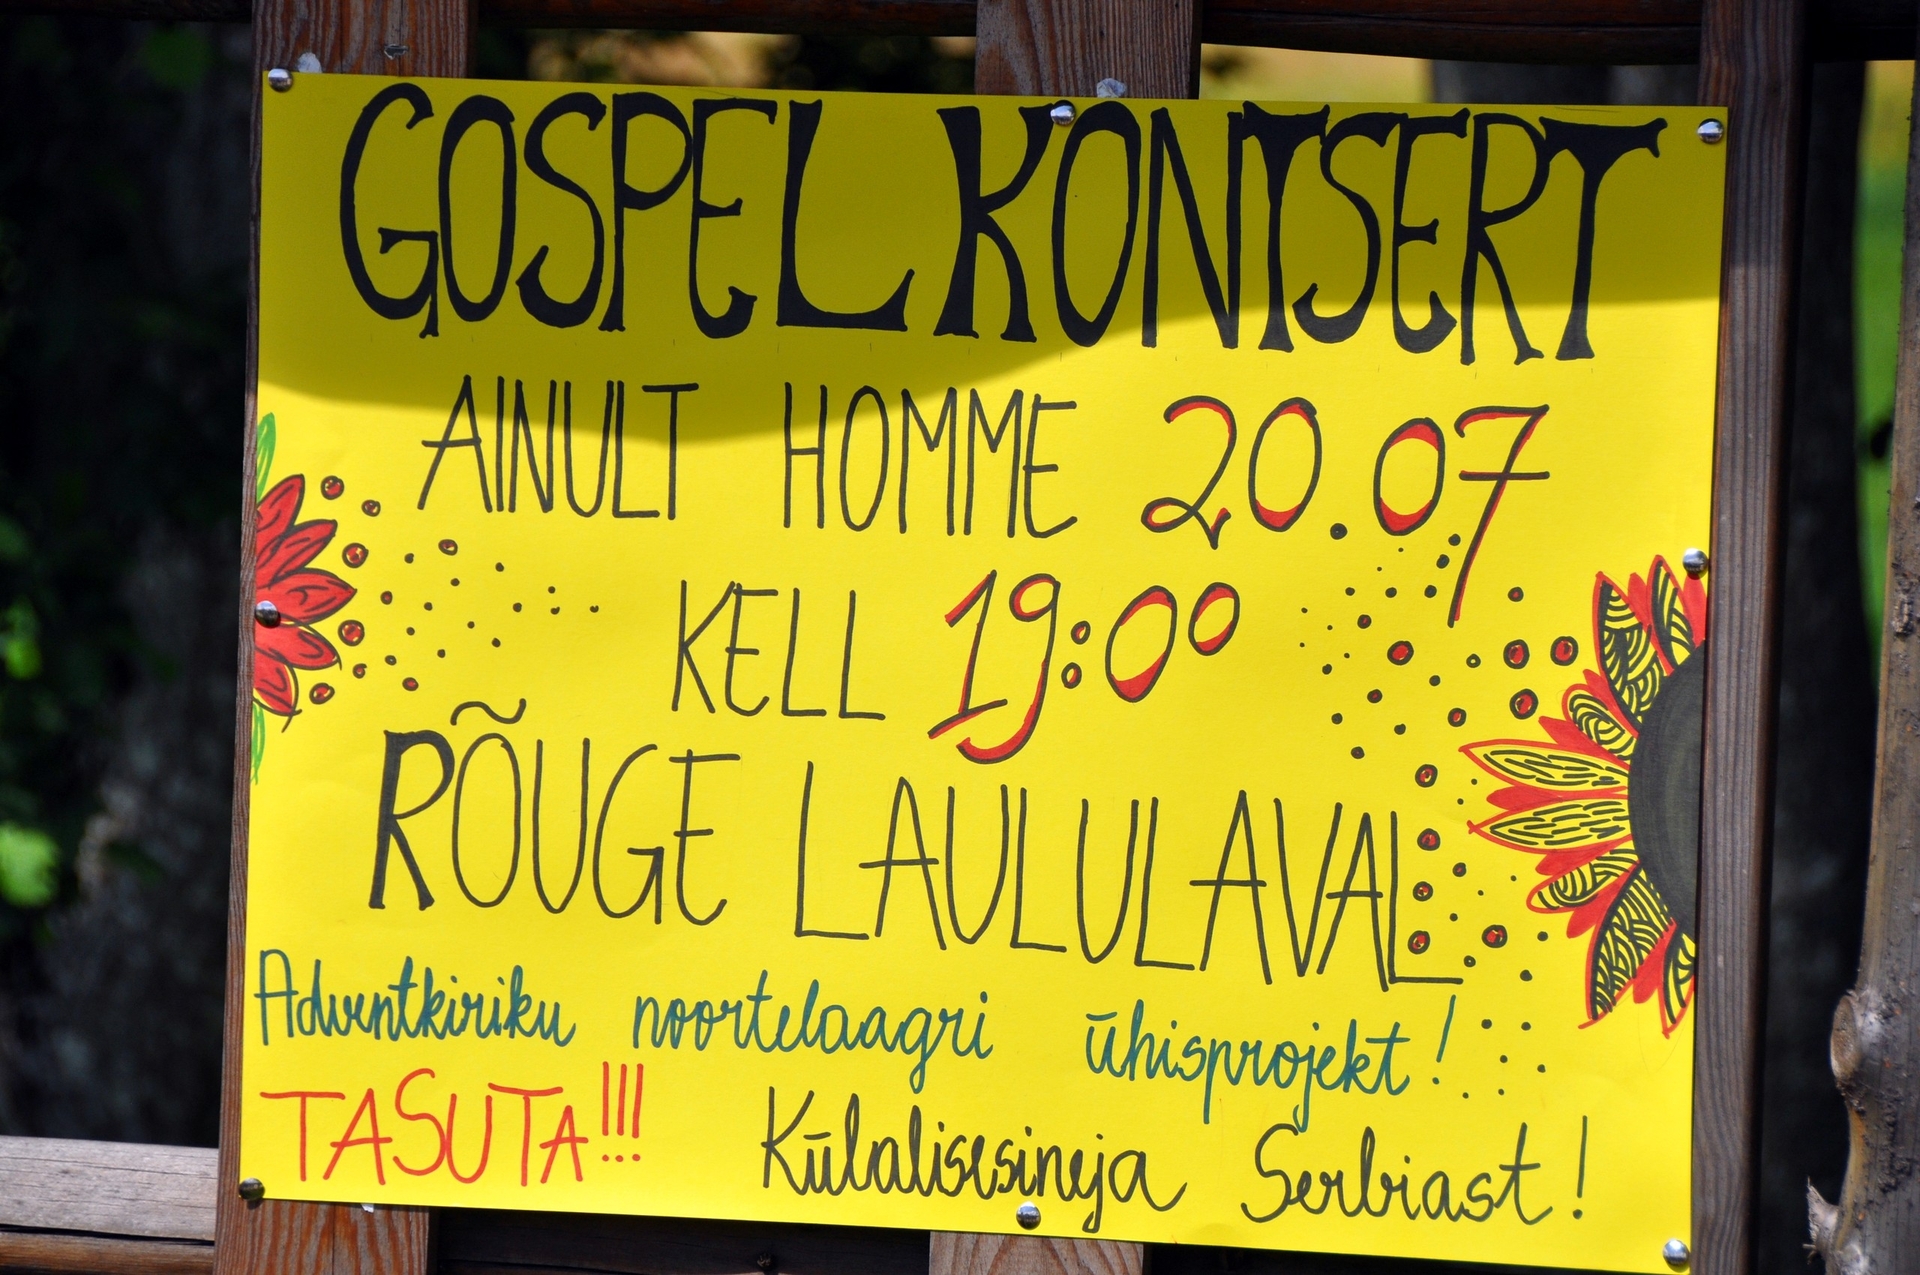 GOSPEL KONTSERT
AINULT HOMME 20.07
KELL 19:00
RÕUGE LAULULAVAL
Adventkiriku noortelaagri ühisprojekt!
TASUTA!!! Külalisesineja Serbiast!